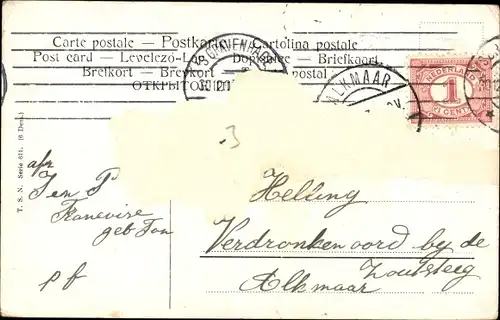 Carte postale — Postkarte — Cartolina postale
Post card — Levelező-Lap — Dopisnice — Briefkaart
Brefkort — Brevkort postal
ОТКРЫТОЕ
ALKMAAR
NEDERLAND
1
CENT
3
T. S. N. Serie 611. (6 Dess.)
afz
J en P
geb Ton
pf
Helling
Verdronkenoord by de
Zoutsteeg
Alkmaar